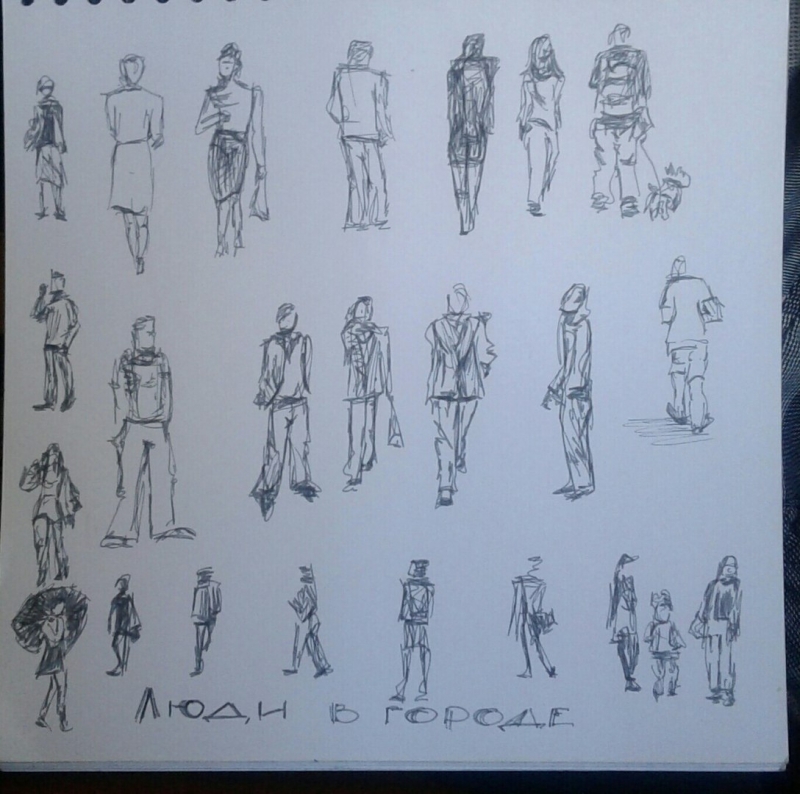 Люди в городе